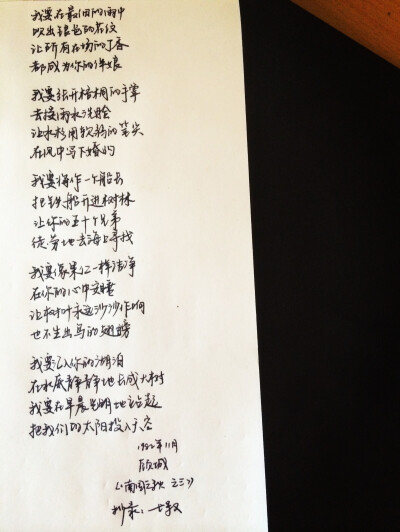 我要在最细的雨中
吹出银色的花纹
让所有在场的丁香
都成为你的伴娘
我要张开梧桐的手掌
去接雨水洗脸
让水杉用软弱的笔尖
在风中写下婚约
我要装作一个船长
把铁船开进树林
让你的五十个兄弟
徒劳地去海上寻找
我要像果仁一样洁净
在你的心中安睡
让树叶永远沙沙作响
也不生出鸟的翅膀
我要汇入你的湖泊
在水底静静地长成大树
我要在早晨光明地站起
把我们的太阳投入天空
1982年11月
顾城
《南国之秋 之三》
抄录：